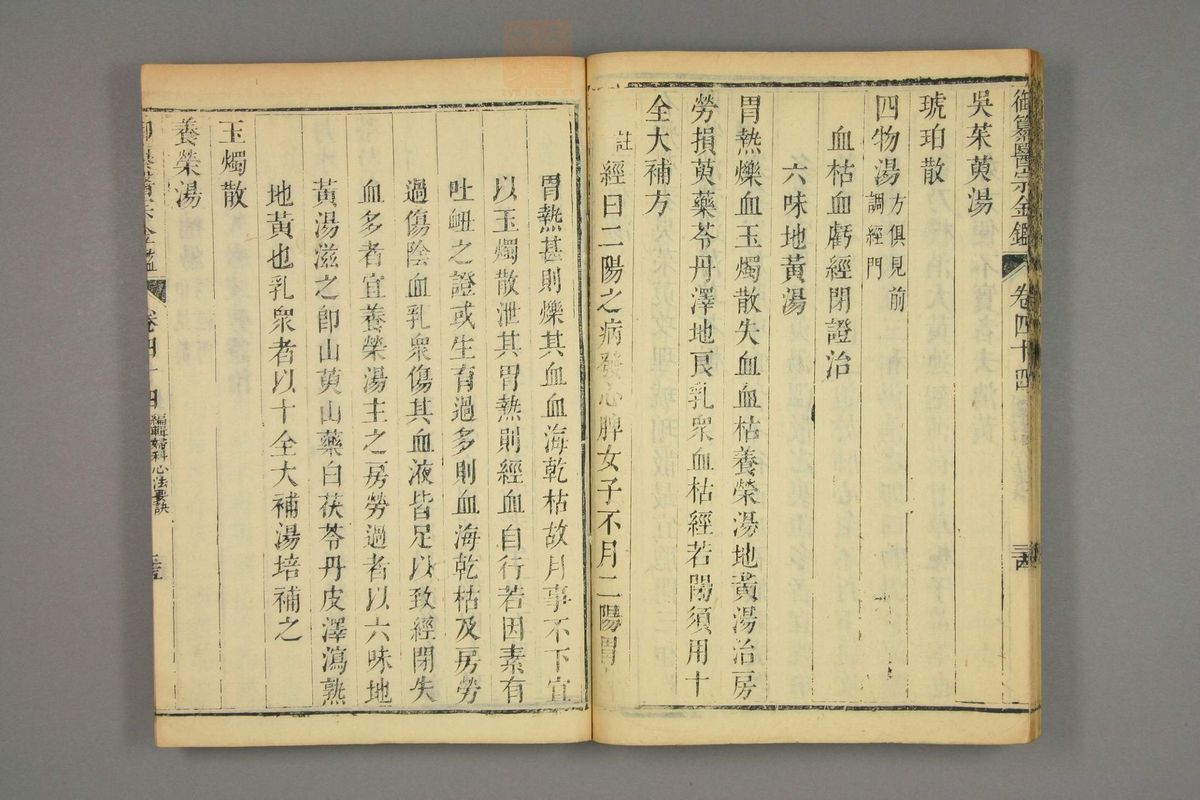 御纂醫宗金鑑 卷四十四
吳茱萸湯
琥珀散
四物湯 方俱見前調經門
血枯血虧經閉證治
六味地黃湯
胃熱爍血玉燭散失血血枯養榮湯地黃湯治房
勞損萸藥苓丹澤地良乳衆血枯經若閉須用十
全大補方
註 經曰二陽之病發心脾女子不月二陽胃
胃熱甚則爍其血血海乾枯故月事不下宜
以玉燭散泄其胃熱則經血自行若因素有
吐衄之證或生育過多則血海乾枯及房勞
過傷陰血乳衆傷其血液皆足以致經閉失
血多者宜養榮湯主之房勞過者以六味地
黃湯滋之卽山萸山藥白茯苓丹皮澤瀉熟
地黃也乳衆者以十全大補湯培補之
玉燭散
養榮湯
卷四十四 編輯婦科心法要訣